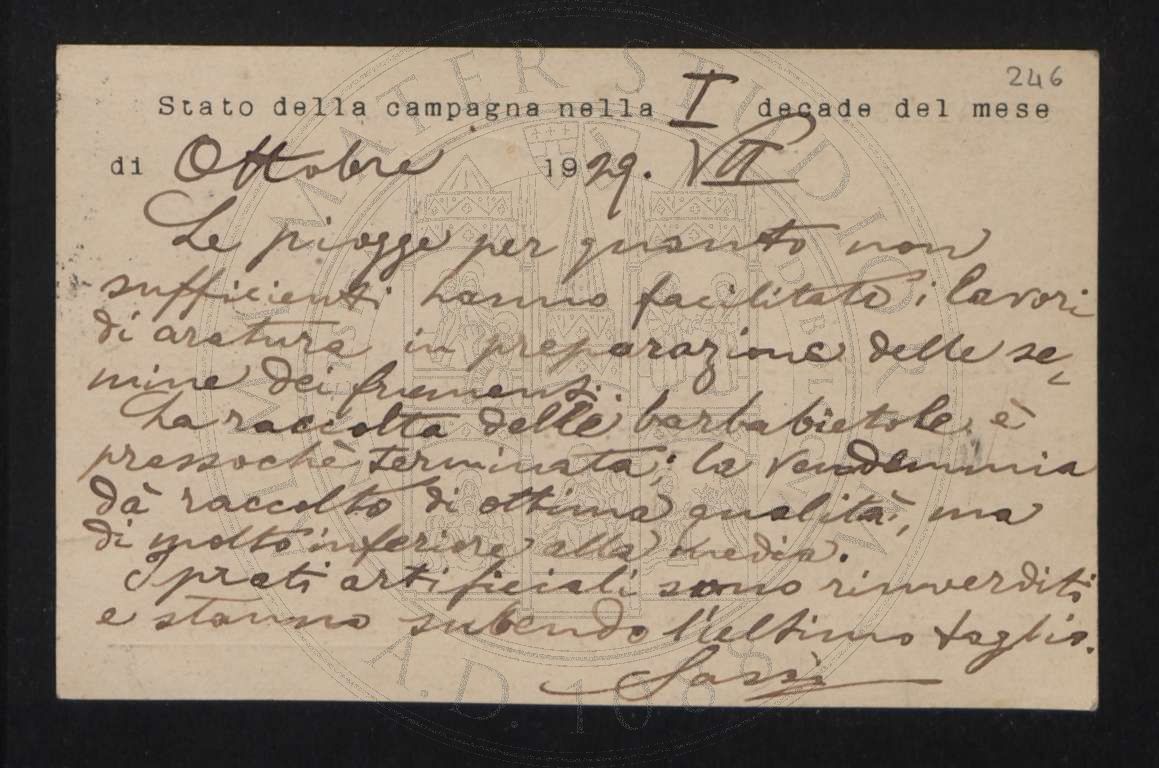 246
Stato della campagna nella I decade del mese
di Ottobre 1929. VII
Le piogge per quanto non
sufficienti hanno facilitato i lavori
di aratura in preparazione delle se-
mine dei frumenti.
La raccolta delle barbabietole è
pressochè terminata; la vendemmia
dà raccolto di ottima qualità, ma
di molto inferiore alla media.
I prati artificiali sono rinverditi
e stanno subendo l'ultimo taglio.
Sassi